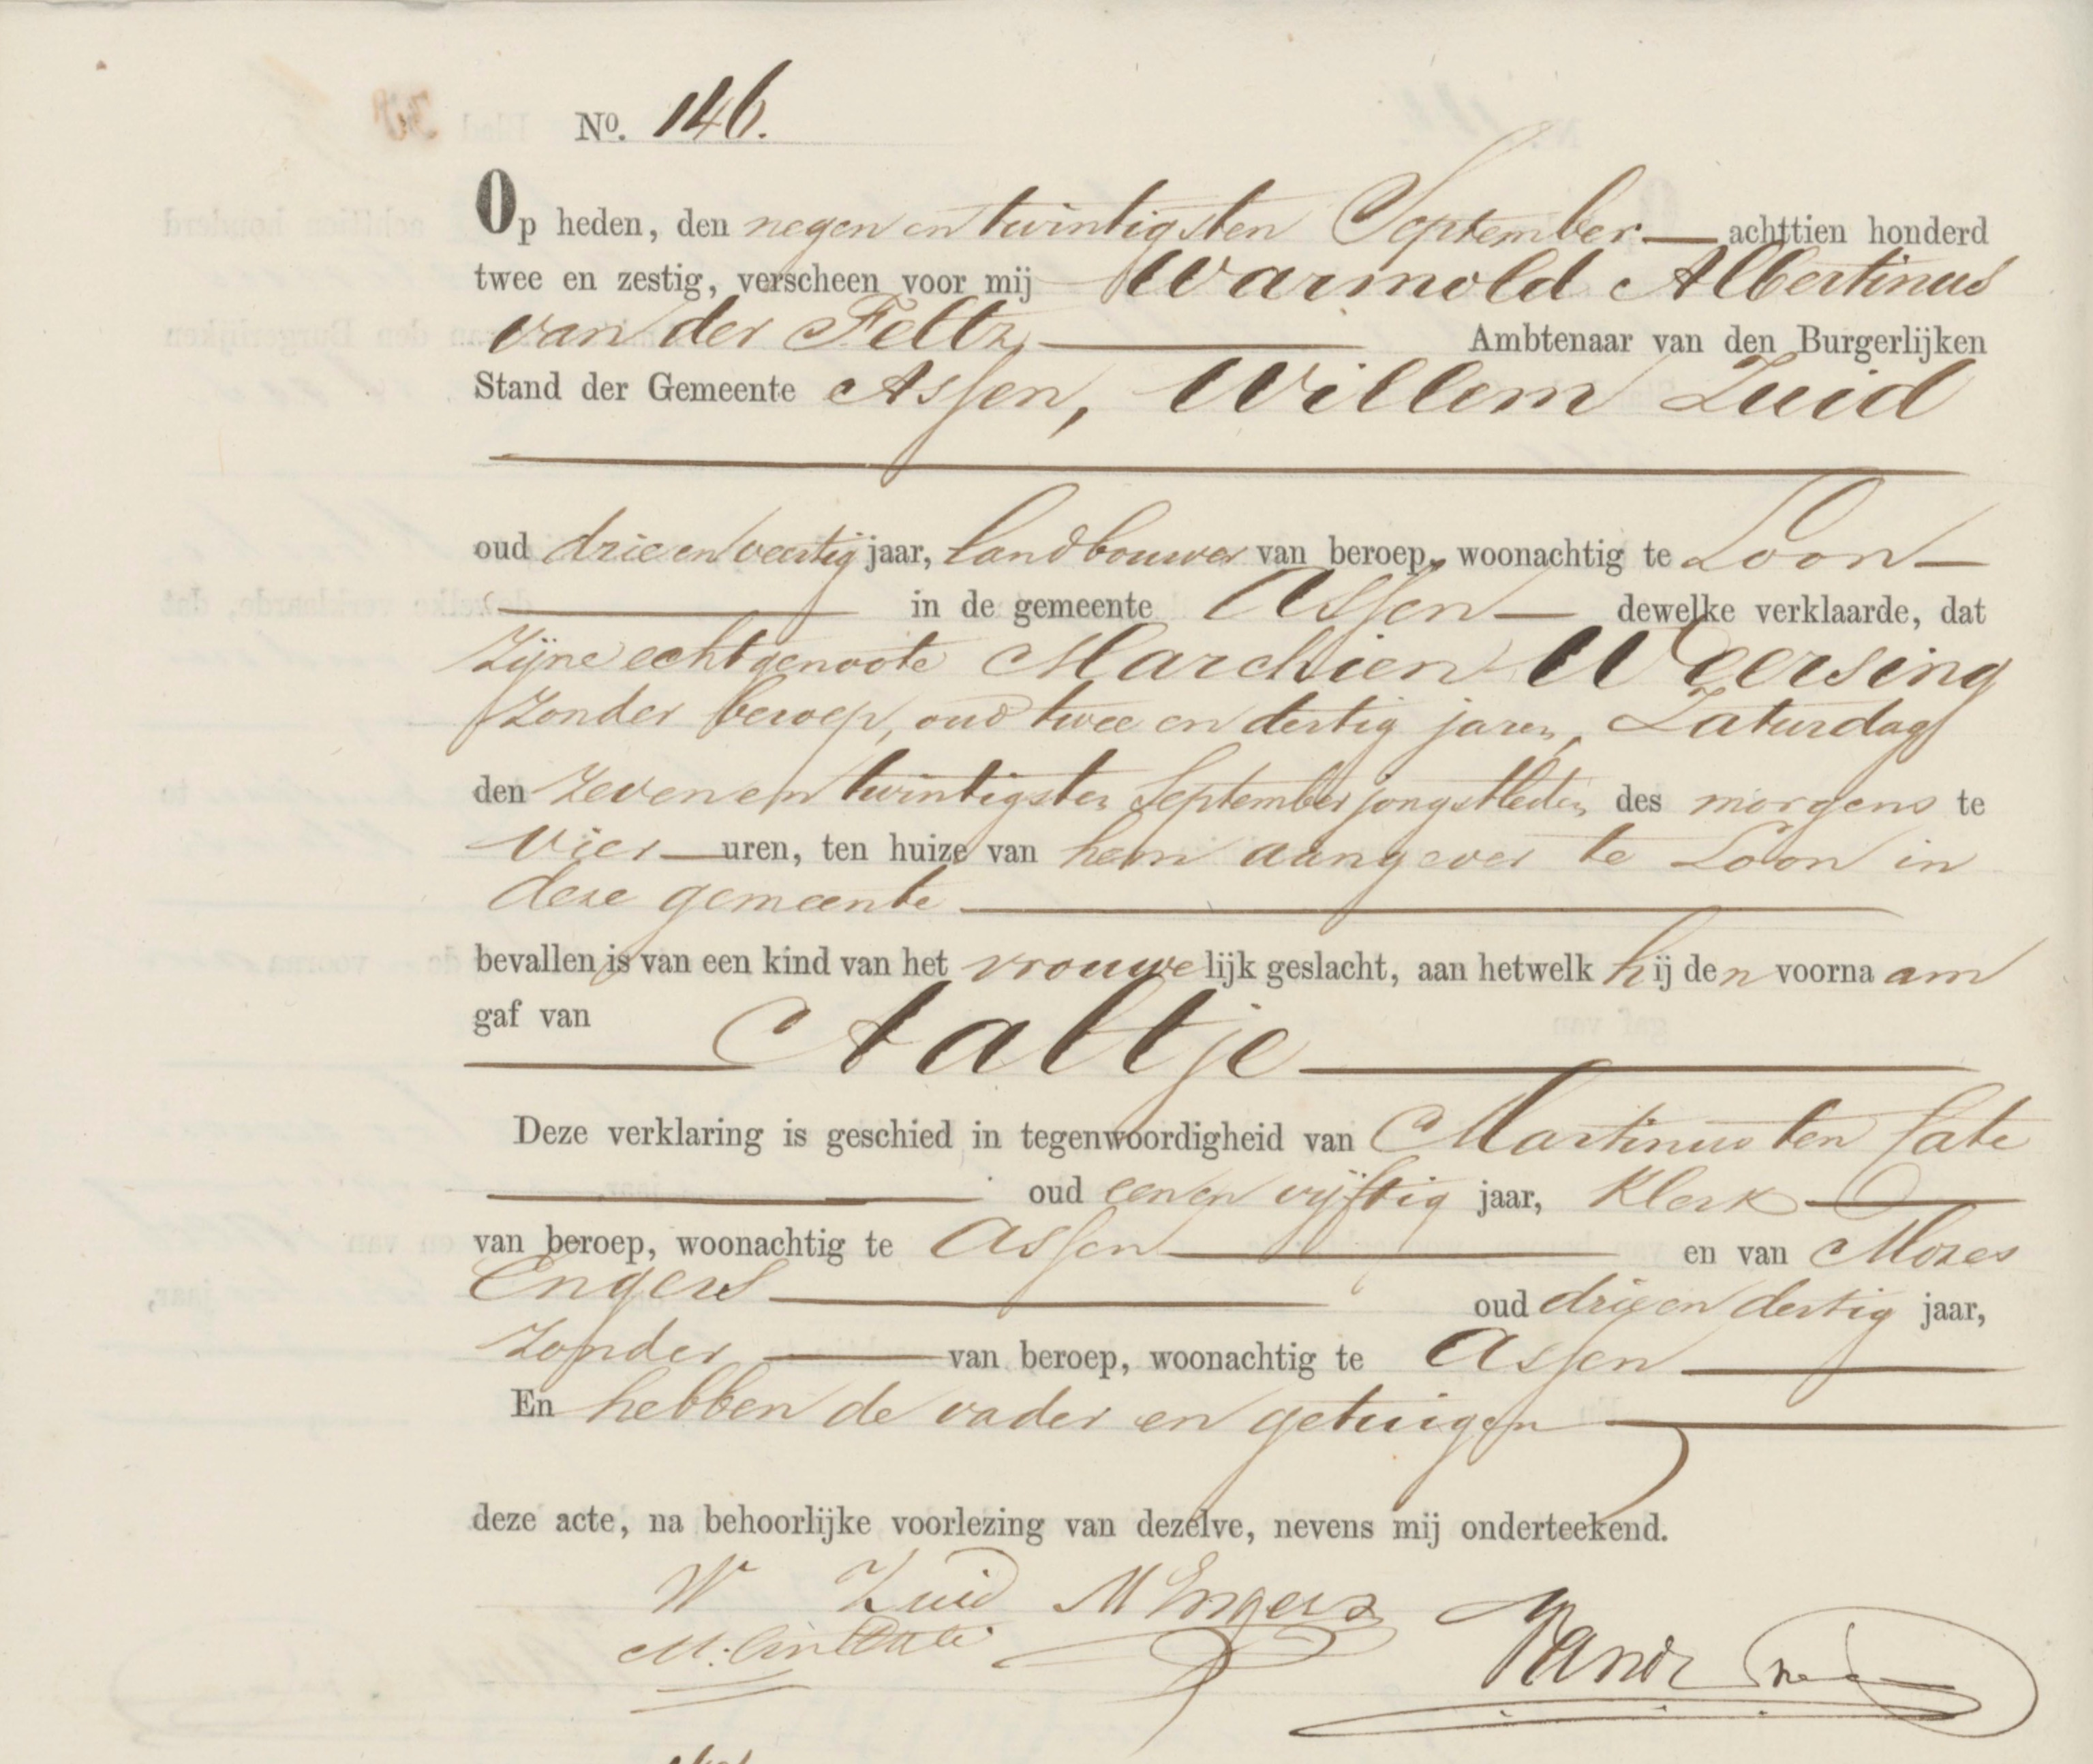 No. 146.
Op heden, den negen en twintigsten September — achttien honderd
twee en zestig, verscheen voor mij Warmold Albertinus
van der Feltz — Ambtenaar van den Burgerlijken
Stand der Gemeente Assen, Willem Zuid
oud drie en veertig jaar, landbouwer van beroep, woonachtig te Loon —
— in de gemeente Assen — dewelke verklaarde, dat
zijne echtgenoote Marchien Weersing
zonder beroep, oud twee en dertig jaren, Zaturdag
den zeven en twintigsten September jongstleden, des morgens te
vier — uren, ten huize van hem aangever te Loon in
deze gemeente —
bevallen is van een kind van het vrouwelijk geslacht, aan hetwelk hij den voornaam
gaf van
— Aaltje —
Deze verklaring is geschied in tegenwoordigheid van Martinus ten Cate
— oud een en vijftig jaar, Klerk —
van beroep, woonachtig te Assen — en van Mozes
Engers — oud drie en dertig jaar,
zonder — van beroep, woonachtig te Assen —
En hebben de vader en getuigen —
deze acte, na behoorlijke voorlezing van dezelve, nevens mij onderteekend.
W Zuid M Engers
M. ten Cate